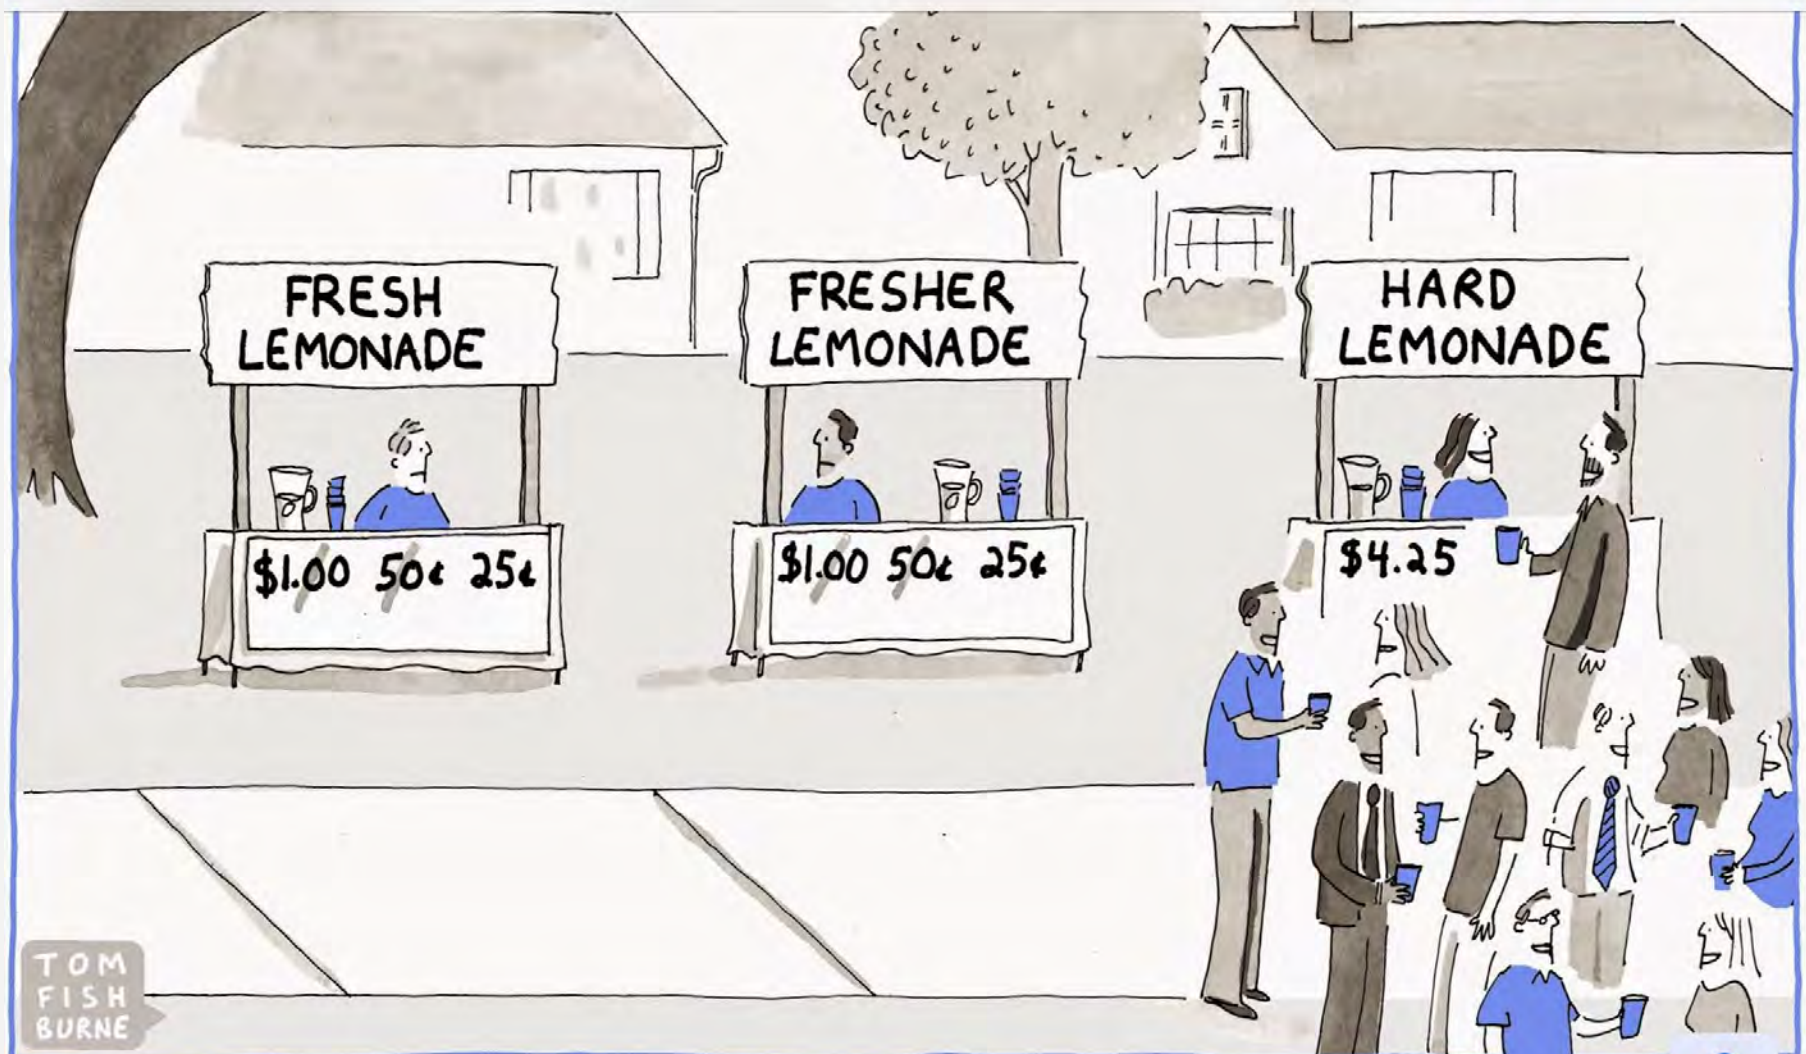 FRESH
LEMONADE
$1.00 50¢ 25¢
FRESHER
LEMONADE
$1.00 50¢ 25¢
HARD
LEMONADE
$4.25
TOM
FISH
BURNE